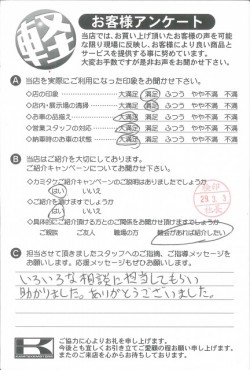 軽
お客様アンケート
当店では、お買い上げ頂いたお客様の声を可能
な限り現場に反映し、お客様により良い商品と
サービスを提供する事に努めています。
大変お手数ですが是非お声をお聞かせ下さい。
A 当店を実際にご利用になった印象をお聞かせ下さい。
◇店の印象 大満足 満足 ふつう やや不満 不満
◇店内・展示場の清掃 大満足 満足 ふつう やや不満 不満
◇お車の品揃え 大満足 満足 ふつう やや不満 不満
◇営業スタッフの対応 大満足 満足 ふつう やや不満 不満
◇納車時のお車の状態 大満足 満足 ふつう やや不満 不満
B 当店はご紹介を大切にしております。
ご紹介キャンペーンについてお聞かせ下さい。
◇カミタケご紹介キャンペーンの説明はありましたでしょうか
はい いいえ
◇ご紹介を頂けますでしょうか
はい いいえ
◇具体的にご紹介頂ける方とのご関係をお聞かせ頂けますでしょうか
ご親族 ご友人 職場の方 機会があれば紹介したい
29.3.3
C 担当させて頂きましたスタッフへのご指摘、ご指導メッセージを
お願いします。応援メッセージもぜひお願いします。
いろいろな相談に担当してもらい
助かりました。ありがとうございました。
K
ご協力に心よりお礼を申し上げます。
今後とも宜しくお引き立てご愛顧の程お願い申し上げます。
またのご来店を心からお待ちしております。